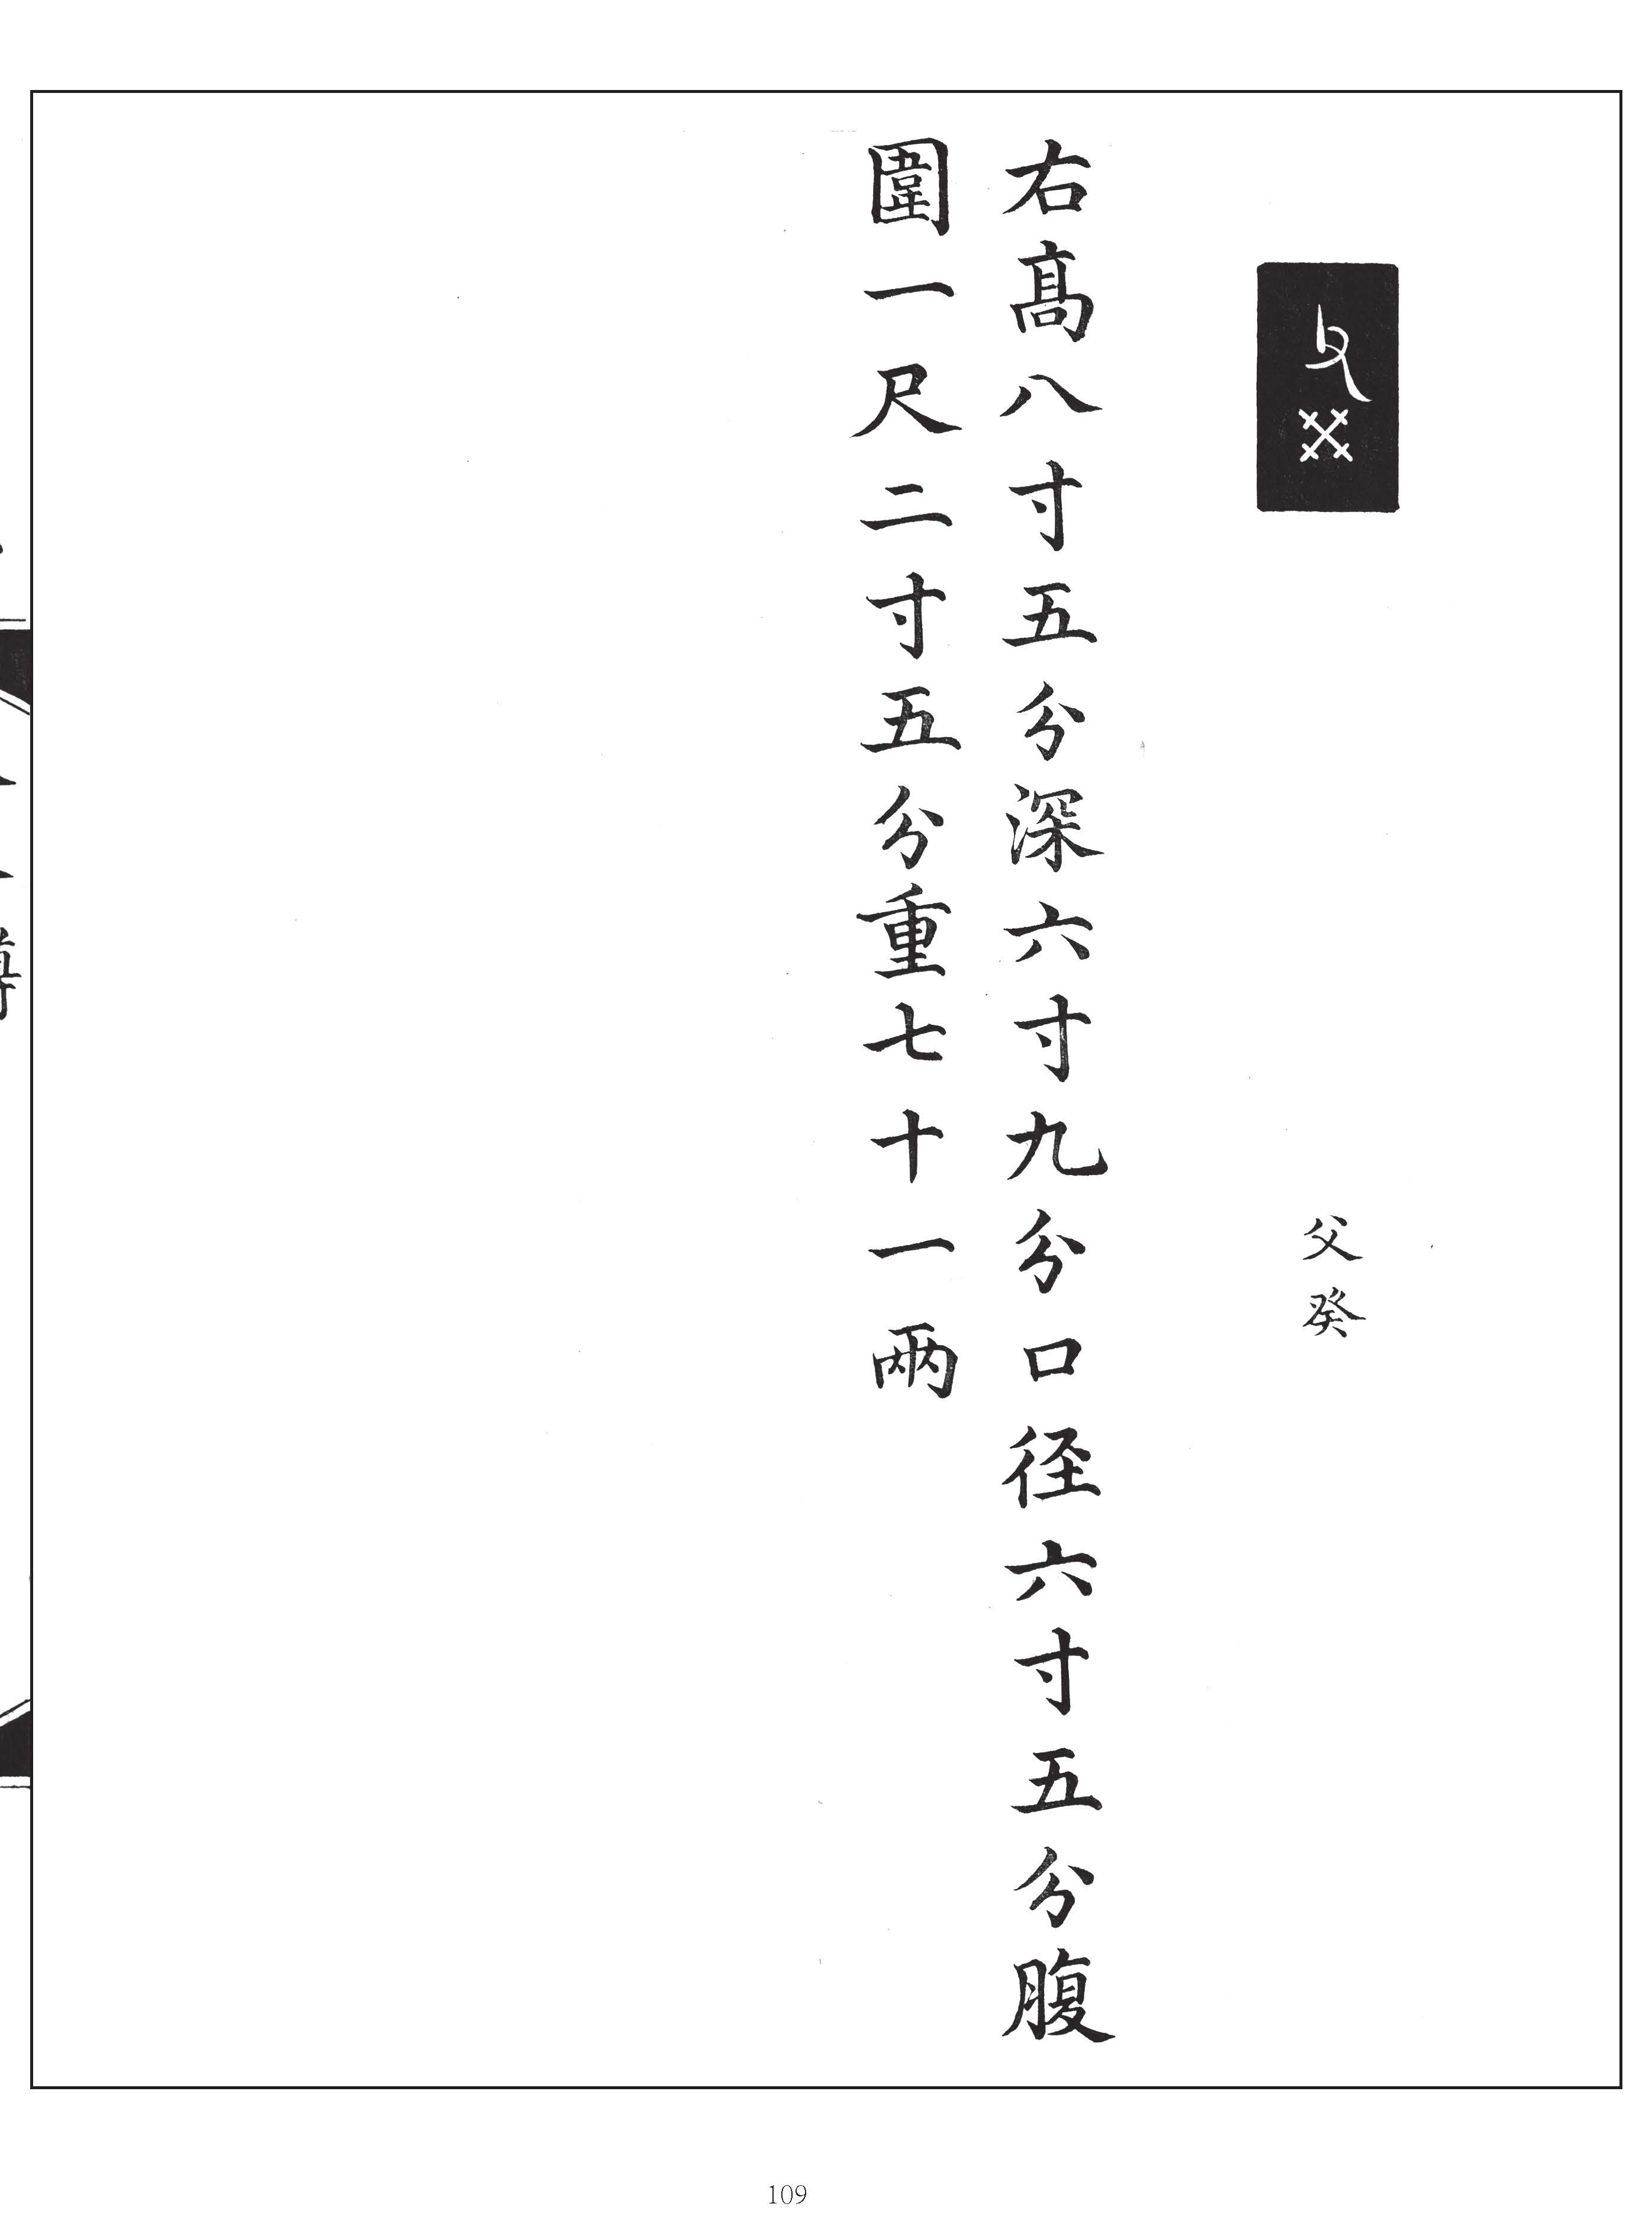 父癸
右高八寸五分深六寸九分口径六寸五分腹
圍一尺二寸五分重七十一兩
109